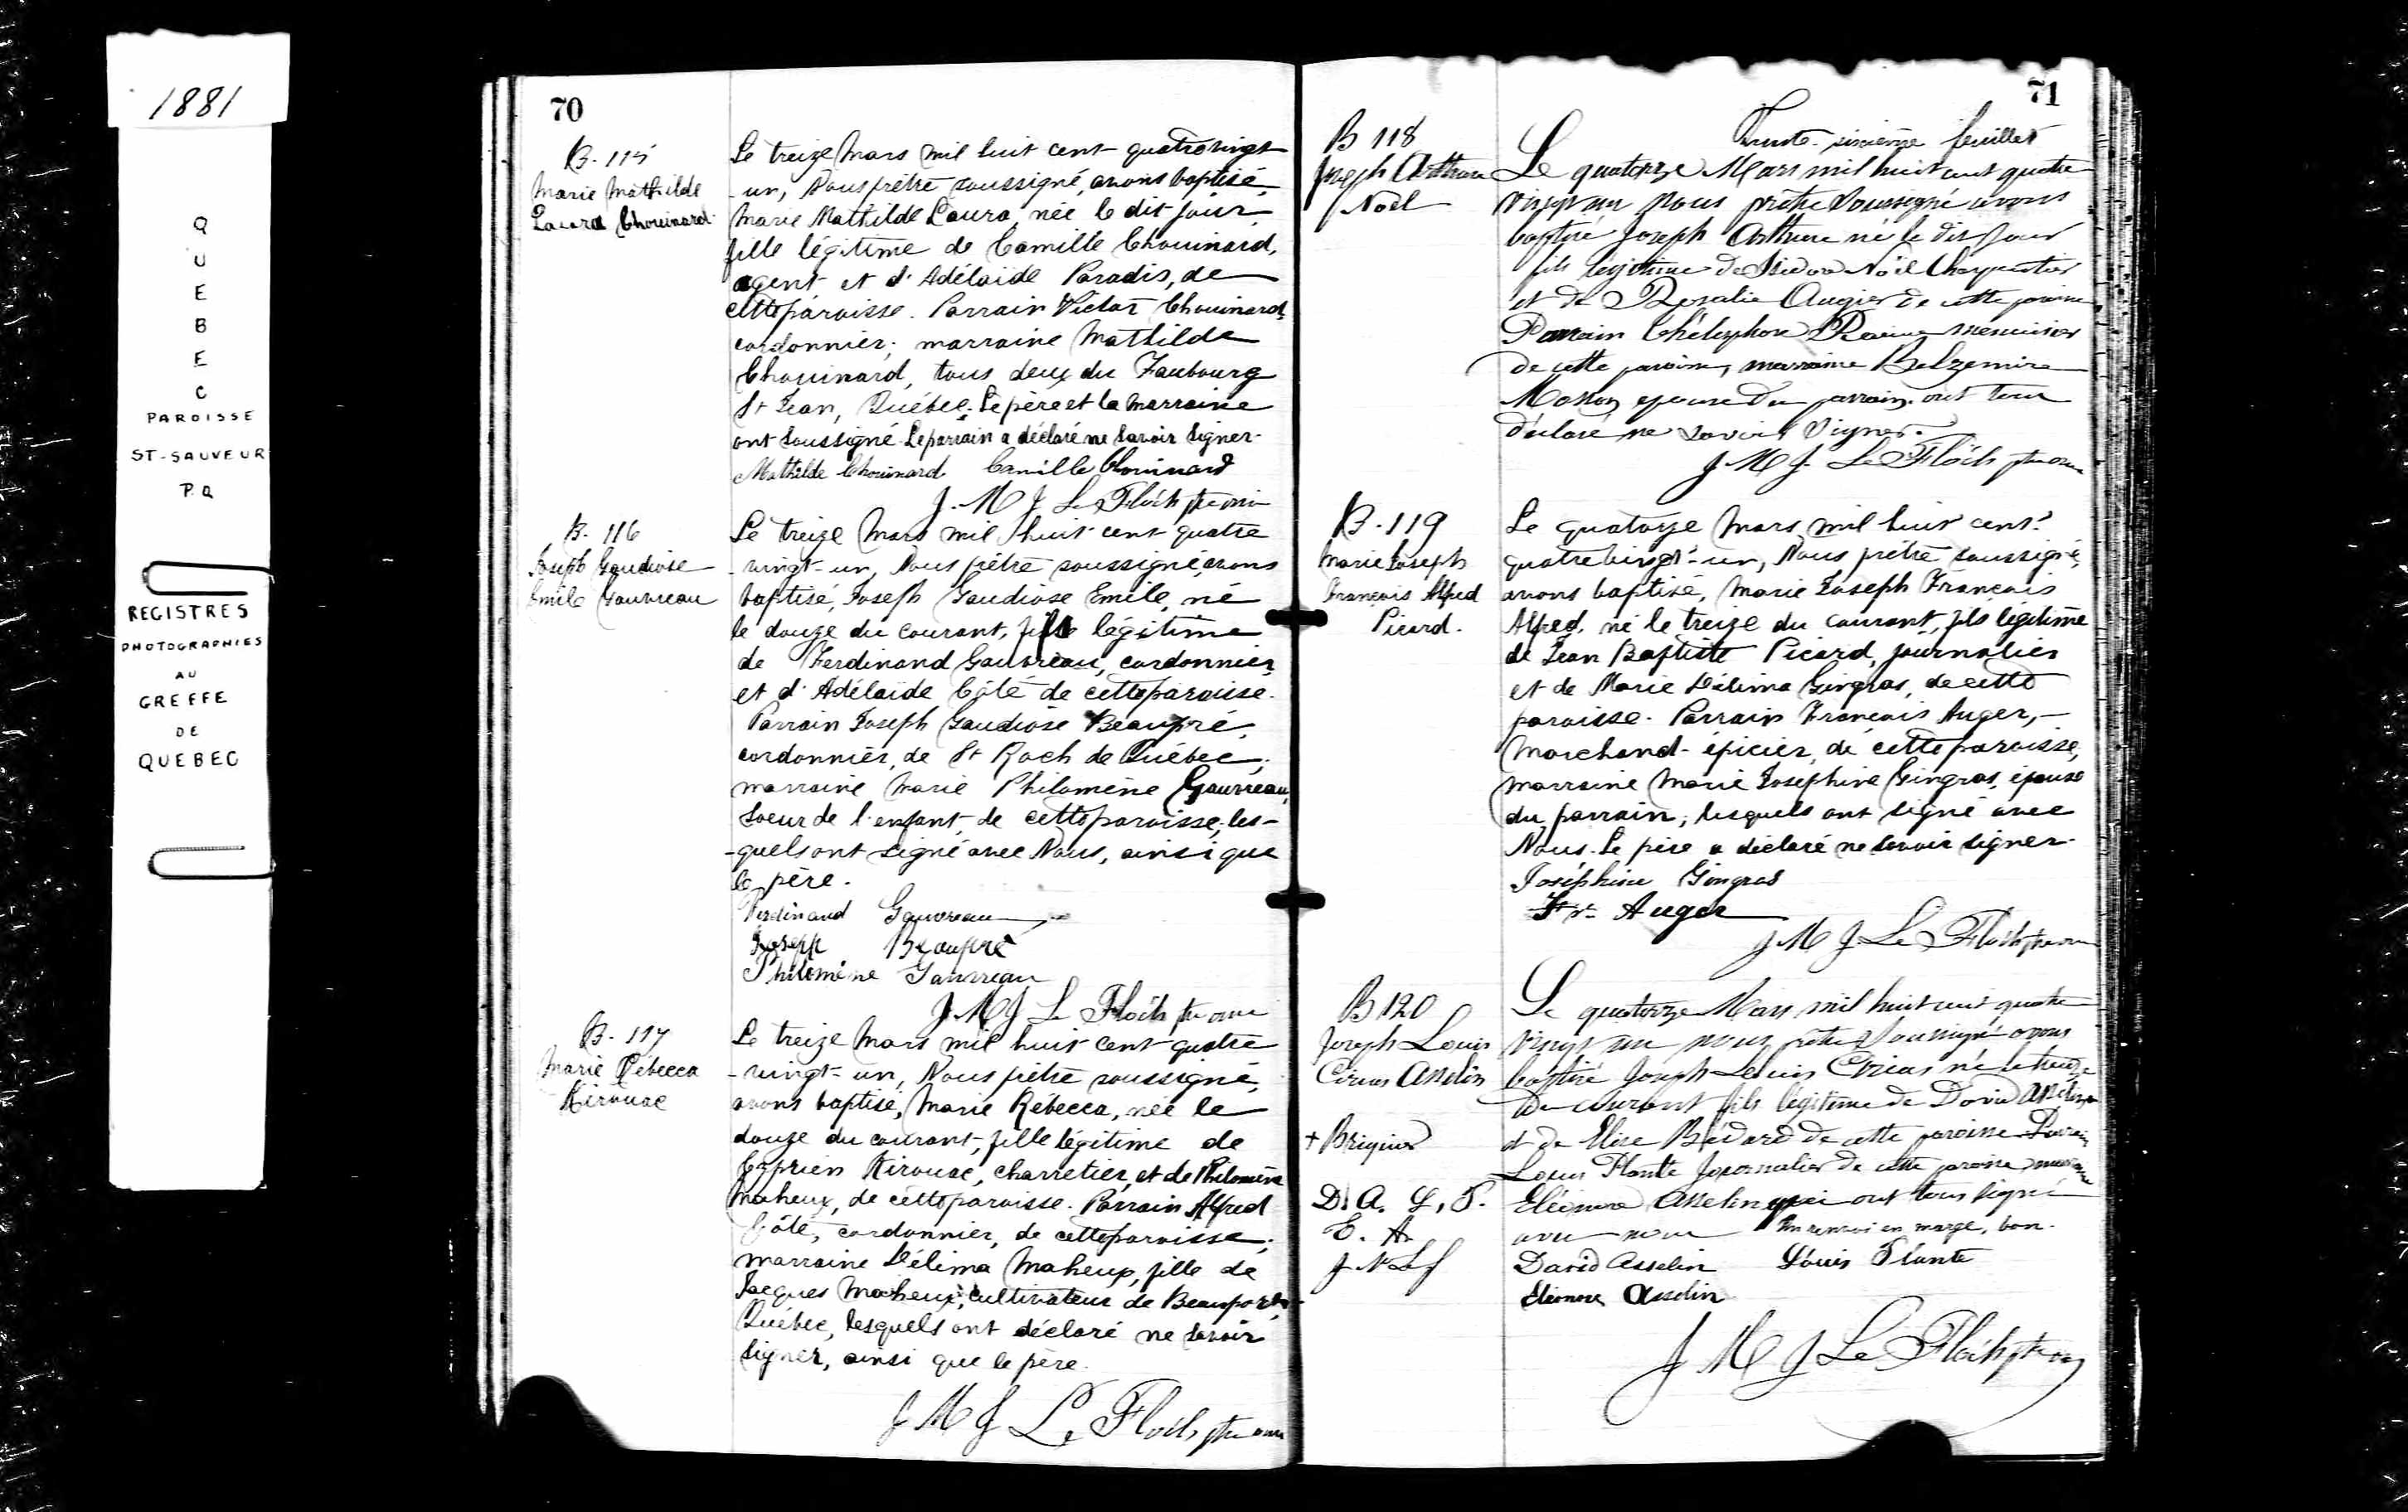 1881
QUEBEC
PAROISSE
ST-SAUVEUR
P.Q
REGISTRES
PHOTOGRAPHIES
AU
GREFFE
DE
QUEBEC
70
B. 115
Marie Mathilde
Laura Chouinard.
Le treize Mars mil huit cent quatrevingt
-un, Nous prêtre soussigné, avons baptisé,
Marie Mathilde Laura, née le dit jour
fille légitime de Camille Chouinard,
agent et d'Adélaïde Paradis, de
cette paroisse. Parrain Victor Chouinard,
cordonnier; marraine Mathilde
Chouinard, tous deux du Faubourg
St Jean, Québec. Le père et la marraine
ont soussigné. Le parrain a déclaré ne savoir signer.
Mathilde Chouinard Camille Chouinard
J. M J Le Flóch ptre omi
B. 116
Joseph Gaudiose
Emile Gauvreau
Le treize Mars mil huit cent quatre
-vingt-un, Nous prêtre soussigné, avons
baptisé, Joseph Gaudiose Emile, né
le douze du courant, fils légitime
de Ferdinand Gauvreau, cordonnier
et d'Adélaïde Côté de cette paroisse.
Parrain Joseph Gaudiose Beaupré,
cordonnier, de St Roch de Québec,
marraine Marie Philomène Gauvreau,
soeur de l'enfant, de cette paroisse, les-
-quels ont signé avec Nous, ainsi que
le père.
Ferdinand Gauvreau
Joseph Beaupré
Philomène Gauvreau
J M J Le Flóch ptre omi
B. 117
Marie Rébecca
Kirouac
Le treize Mars mil huit cent quatre
-vingt-un, Nous prêtre soussigné,
avons baptisé, Marie Rébecca, née le
douze du courant, fille légitime de
Cyprien Kirouac, charretier, et de Philomène
Maheux, de cette paroisse. Parrain Alfred
Côté, cordonnier, de cette paroisse;
marraine Délima Maheux, fille de
Jacques Maheux, cultivateur de Beauport,
Québec, lesquels ont déclaré ne savoir
signer, ainsi que le père.
J M J Le Flóch ptre omi
71
Trente-sixième feuillet
B 118
Joseph Arthur
Noël
Le quatorze Mars mil huit cent quatre
vingt un nous prêtre soussigné avons
baptisé Joseph Arthur né le dit jour
fils légitime de Isidore Noël Charpentier
et de Rosalie Augier de cette paroisse
Parrain Thélesphore menuisier
de cette paroisse, marraine Belzemire
Masson epouse du parrain ont tous
déclaré ne savoir signer.
J M J. Le Flóch ptre omi
B. 119
Marie Joseph
François Alfred
Picard.
Le quatorze Mars mil huit cent
quatrevingt-un, Nous prêtre soussigné,
avons baptisé, Marie Joseph François
Alfred, né le treize du courant, fils légitime
de Jean Baptiste Picard, journalier
et de Marie Délima Gingras, de cette
paroisse. Parrain François Auger,-
Marchand-épicier, de cette paroisse,
marraine Marie Josephine Gingras, épouse
du parrain, lesquels ont signé avec
Nous. Le père a déclaré ne savoir signer.
Joséphine Gingras
Frs Auger
J M J Le Flóch ptre omi
B 120
Joseph Louis
Cirius Asselin
+ Briquier
D. A. L. P.
E. A.
J M L f
Le quatorze Mars mil huit cent quatre
vingt un nous prêtre soussigné avons
baptisé Joseph Louis Cirius né le treize
du courant fils légitime de David Asselin +
et de Elise Bédard de cette paroisse Parrain
Louis Plante Journalier de cette paroisse marraine
Eléonore Asselin qui ont tous signé
avec nous Un renvoi en marge, bon.
David Asselin Louis Plante
Eléonore Asselin
J M J Le Flóch ptre omi